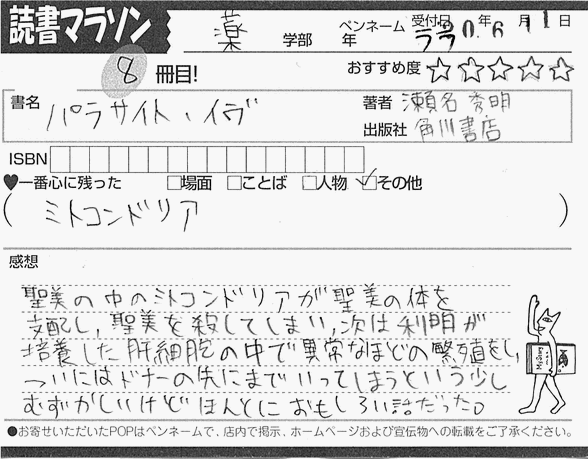 読書マラソン 薬 学部 年 ペンネーム ララ 受付日 20年6月11日
8冊目! おすすめ度 ☆☆☆☆☆
書名 パラサイト・イヴ 著者 瀬名秀明
出版社 角川書店
ISBN
♥一番心に残った □場面 □ことば □人物 ☑その他
( ミトコンドリア )
感想
聖美の中のミトコンドリアが聖美の体を
支配し、聖美を殺してしまい、次は利明が
培養した肝細胞の中で異常なほどの繁殖をし、
ついにはドナーの先にまでいってしまうという少し
むずかしいけどほんとにおもしろい話だった。
●お寄せいただいたPOPはペンネームで、店内で掲示、ホームページおよび宣伝物への転載をご了承ください。